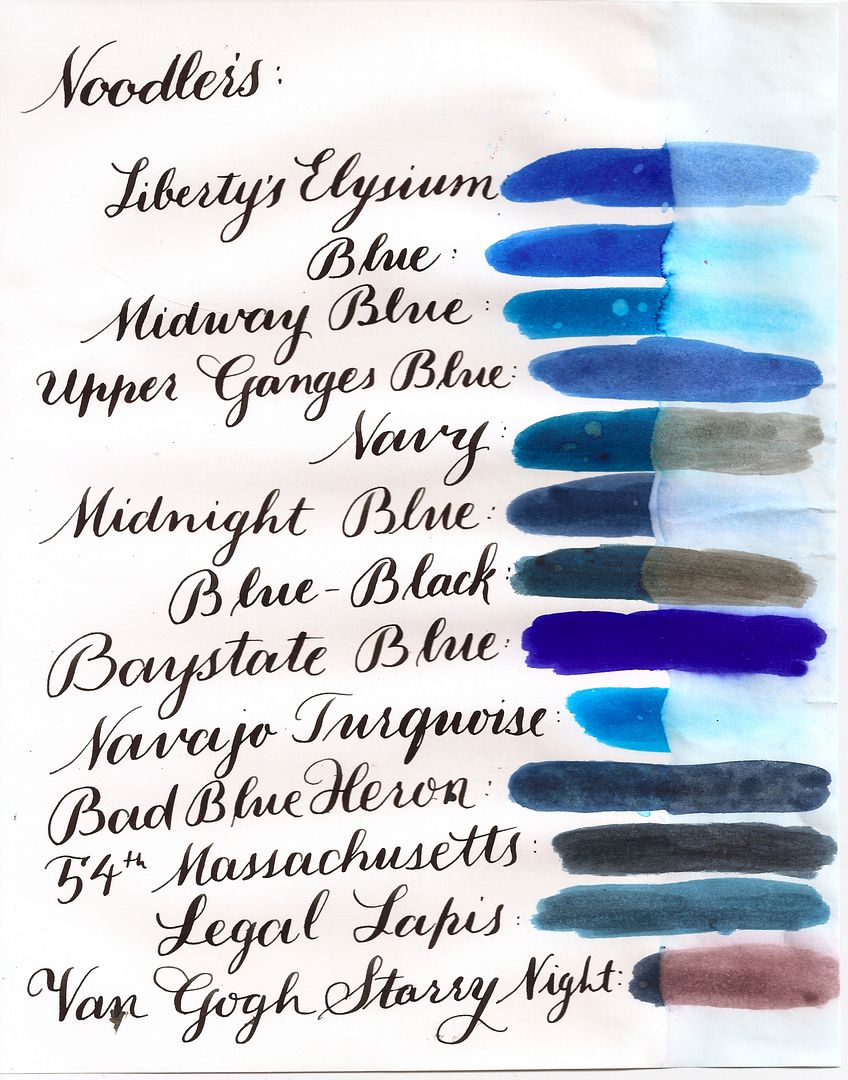 Noodler's:
Liberty's Elysium
Blue:
Midway Blue:
Upper Ganges Blue:
Navy:
Midnight Blue:
Blue-Black:
Baystate Blue:
Navajo Turquoise:
Bad Blue Heron:
54th Massachusetts:
Legal Lapis:
Van Gogh Starry Night: